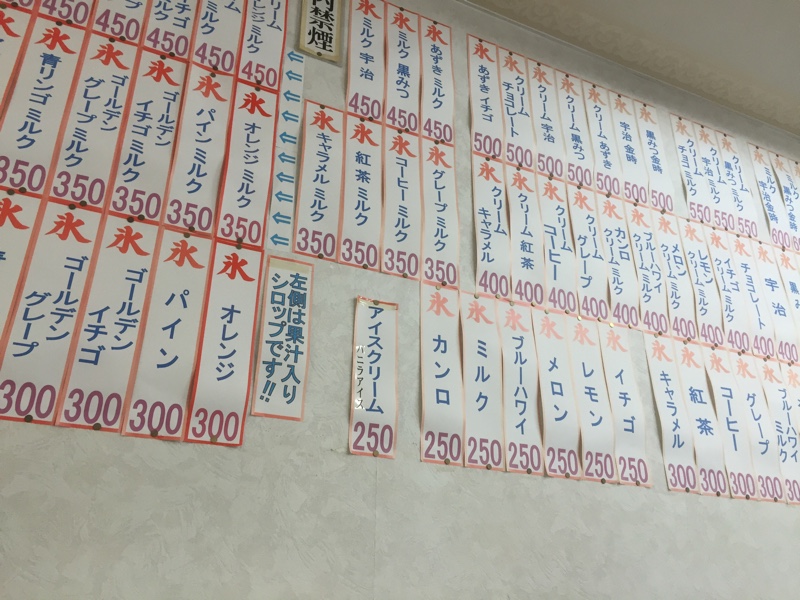 内禁煙
氷 ミルク 宇治 450
氷 ミルク 黒みつ 450
氷 あずきミルク 450
氷 あずき イチゴ 500
氷 クリーム チョコレート 500
氷 クリーム 宇治 500
氷 クリーム 黒みつ 500
氷 クリーム あずき 500
氷 宇治 金時 500
氷 黒みつ金時 500
氷 クリーム チョコミルク 550
氷 クリーム 宇治ミルク 550
氷 クリーム 黒みつミルク 550
450
450
450
450
オレンジ ミルク 450
氷 青リンゴ ミルク 350
氷 ゴールデン グレープ ミルク 350
氷 ゴールデン イチゴ ミルク 350
氷 パイン ミルク 350
氷 オレンジ ミルク 350
氷 キャラメル ミルク 350
氷 紅茶 ミルク 350
氷 コーヒー ミルク 350
氷 グレープ ミルク 350
氷 クリーム キャラメル 400
氷 クリーム 紅茶 400
氷 クリーム コーヒー 400
氷 クリーム グレープ 400
氷 カンロ クリーム ミルク 400
氷 ブルーハワイ クリーム ミルク 400
氷 メロン クリーム ミルク 400
氷 レモン クリーム ミルク 400
氷 イチゴ クリーム ミルク 400
氷 チョコレート 400
氷 宇治 400
氷 ゴールデン グレープ 300
氷 ゴールデン イチゴ 300
氷 パイン 300
氷 オレンジ 300
左側は果汁入り
シロップです!!
アイスクリーム バニラアイス 250
氷 カンロ 250
氷 ミルク 250
氷 ブルーハワイ 250
氷 メロン 250
氷 レモン 250
氷 イチゴ 250
氷 キャラメル 300
氷 紅茶 300
氷 コーヒー 300
氷 グレープ 300
氷 ブルーハワイ ミルク 300